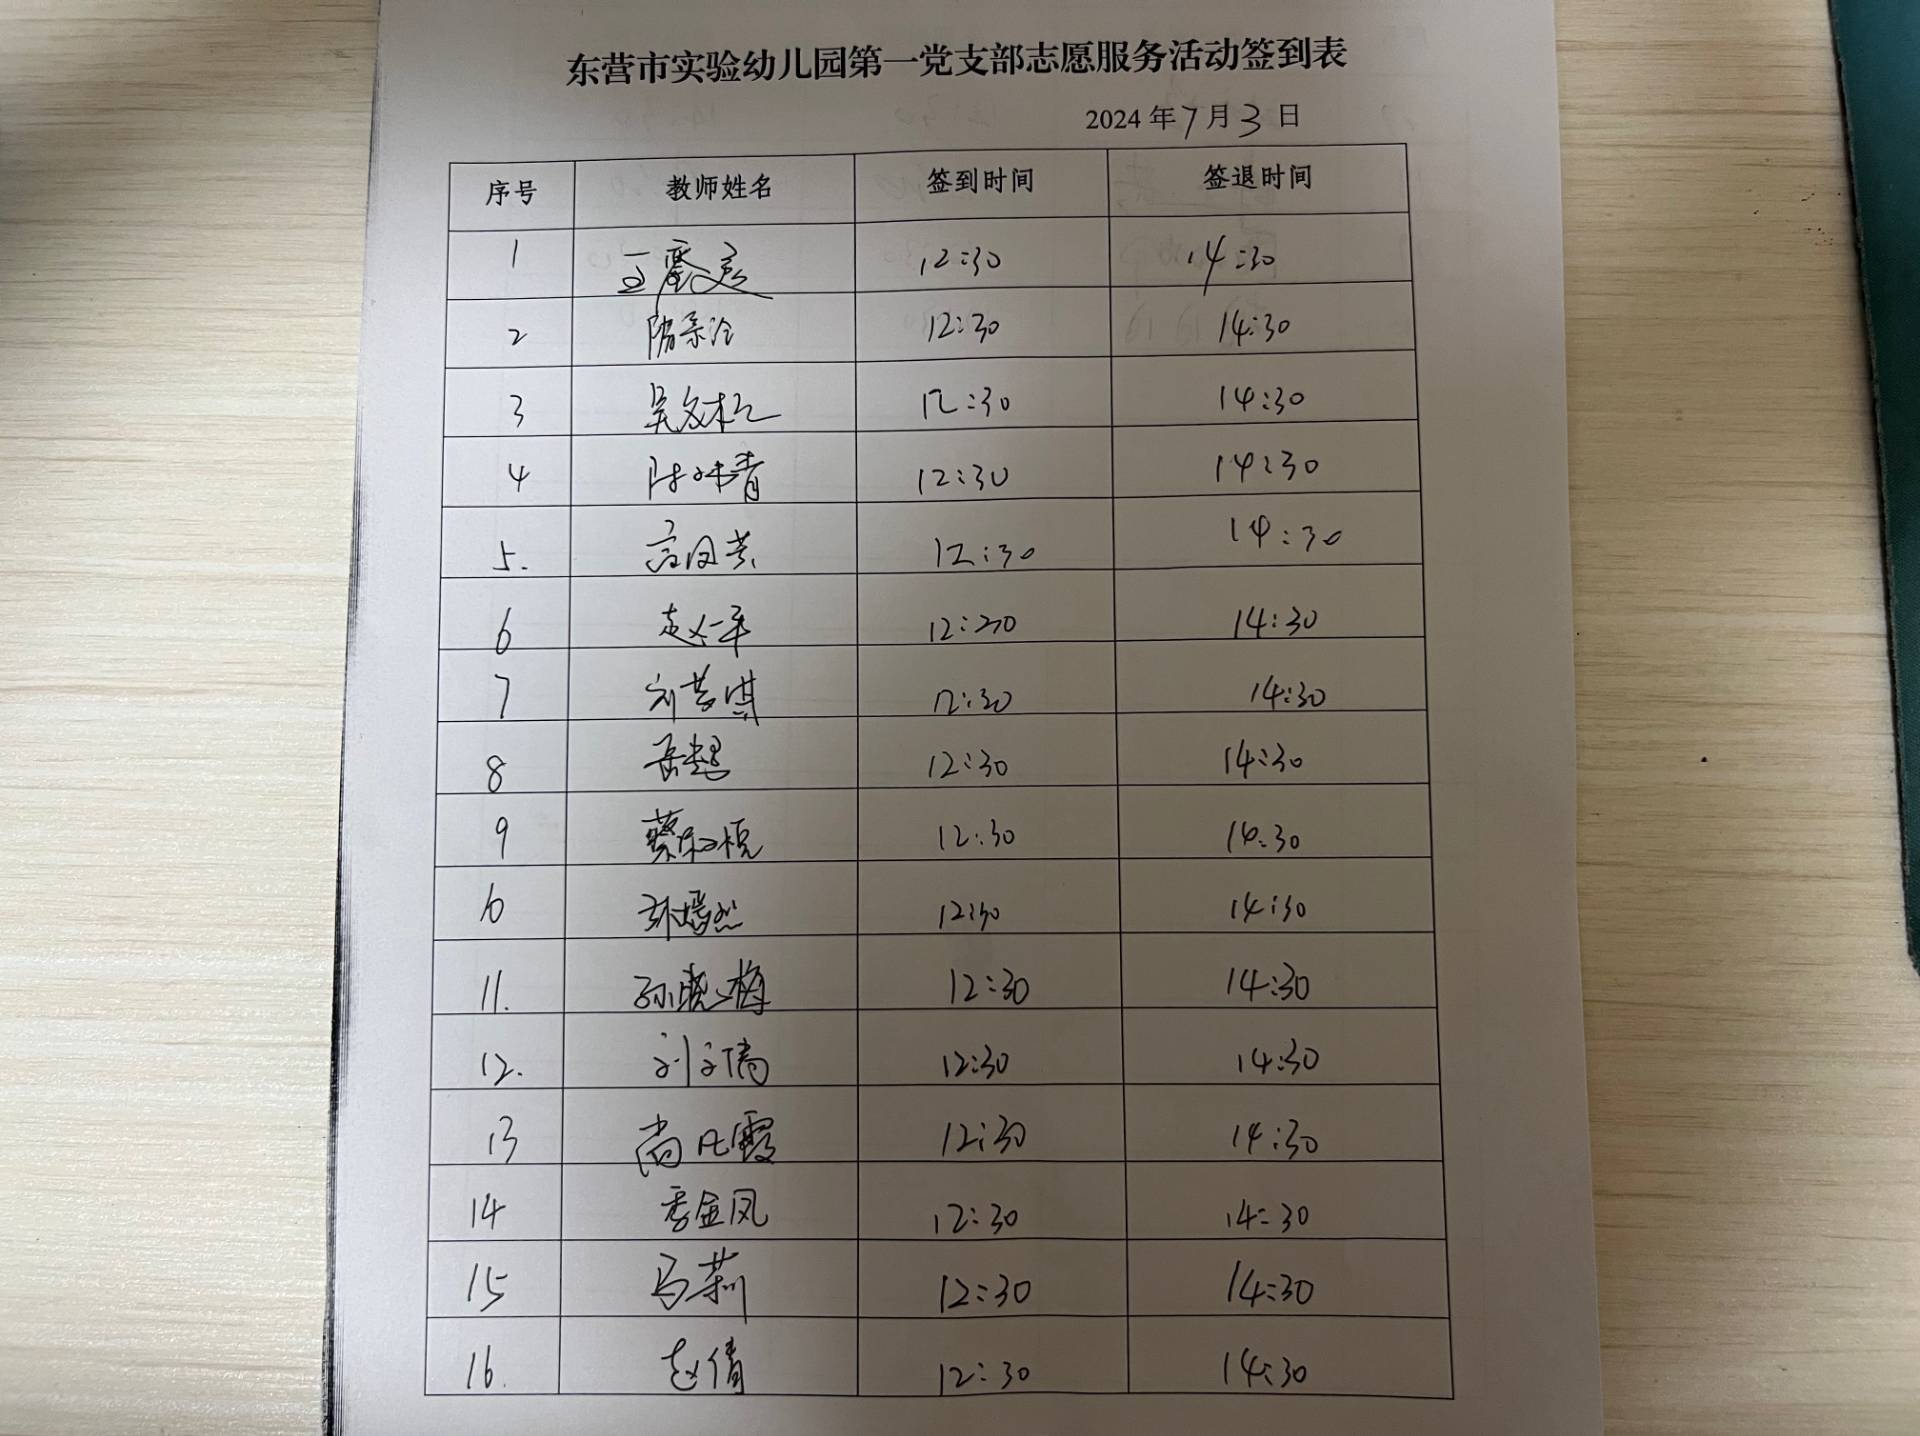 东营市实验幼儿园第一党支部志愿服务活动签到表
2024年7月3日
序号 教师姓名 签到时间 签退时间
1 12:30 14:30
2 12:30 14:30
3 吴 12:30 14:30
4 陈 青 12:30 14:30
5. 高 12:30 14:30
6 赵一平 12:30 14:30
7 刘梦琪 12:30 14:30
8 12:30 14:30
9 蔡 悦 12:30 14:30
10 然 12:30 14:30
11. 孙晓梅 12:30 14:30
12. 刘 12:30 14:30
13 尚 霞 12:30 14:30
14 季金凤 12:30 14:30
15 马莉 12:30 14:30
16. 赵倩 12:30 14:30